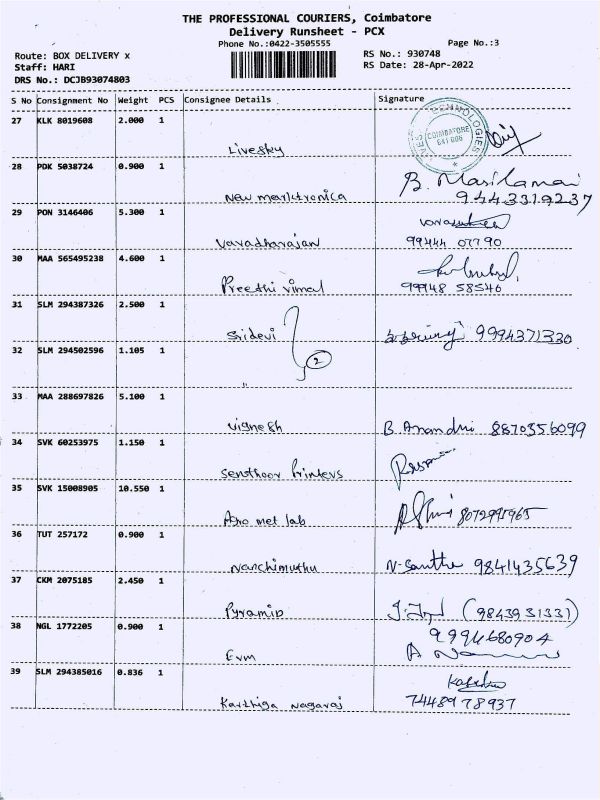 THE PROFESSIONAL COURIERS, Coimbatore
Delivery Runsheet - PCX
Phone No.:0422-3505555
Page No.:3
Route: BOX DELIVERY x
RS No.: 930748
Staff: HARI
RS Date: 28-Apr-2022
DRS No.: DCJB93074803
S No Consignment No Weight PCS Consignee Details Signature
27 KLK 8019608 2.000 1
TECHNOLOGIES
COIMBATORE
Livesky
28 PDK 5038724 0.900 1
B. Masilamani
New marktronica 9443319237
29 PON 3146406 5.300 1
Varadharajan 99444 07790
30 MAA 565495238 4.600 1
Preethi vimal 99948 58546
31 SLM 294387326 2.500 1
Sridevi 9994371330
32 SLM 294502596 1.105 1
2
"
33 MAA 288697826 5.100 1
Vignesh B. Anandhi 8870356099
34 SVK 60253975 1.150 1
Senthoor Printers
35 SVK 15008905 10.550 1
Aro met lab 8072995965
36 TUT 257172 0.900 1
Nanchimuthu N. Santha 9841435639
37 CKM 2075185 2.450 1
Pyramid (9843931331)
38 NGL 1772205 0.900 1
9994680904
Evm
39 SLM 294385016 0.836 1
Karthiga nagaraj 7448978937